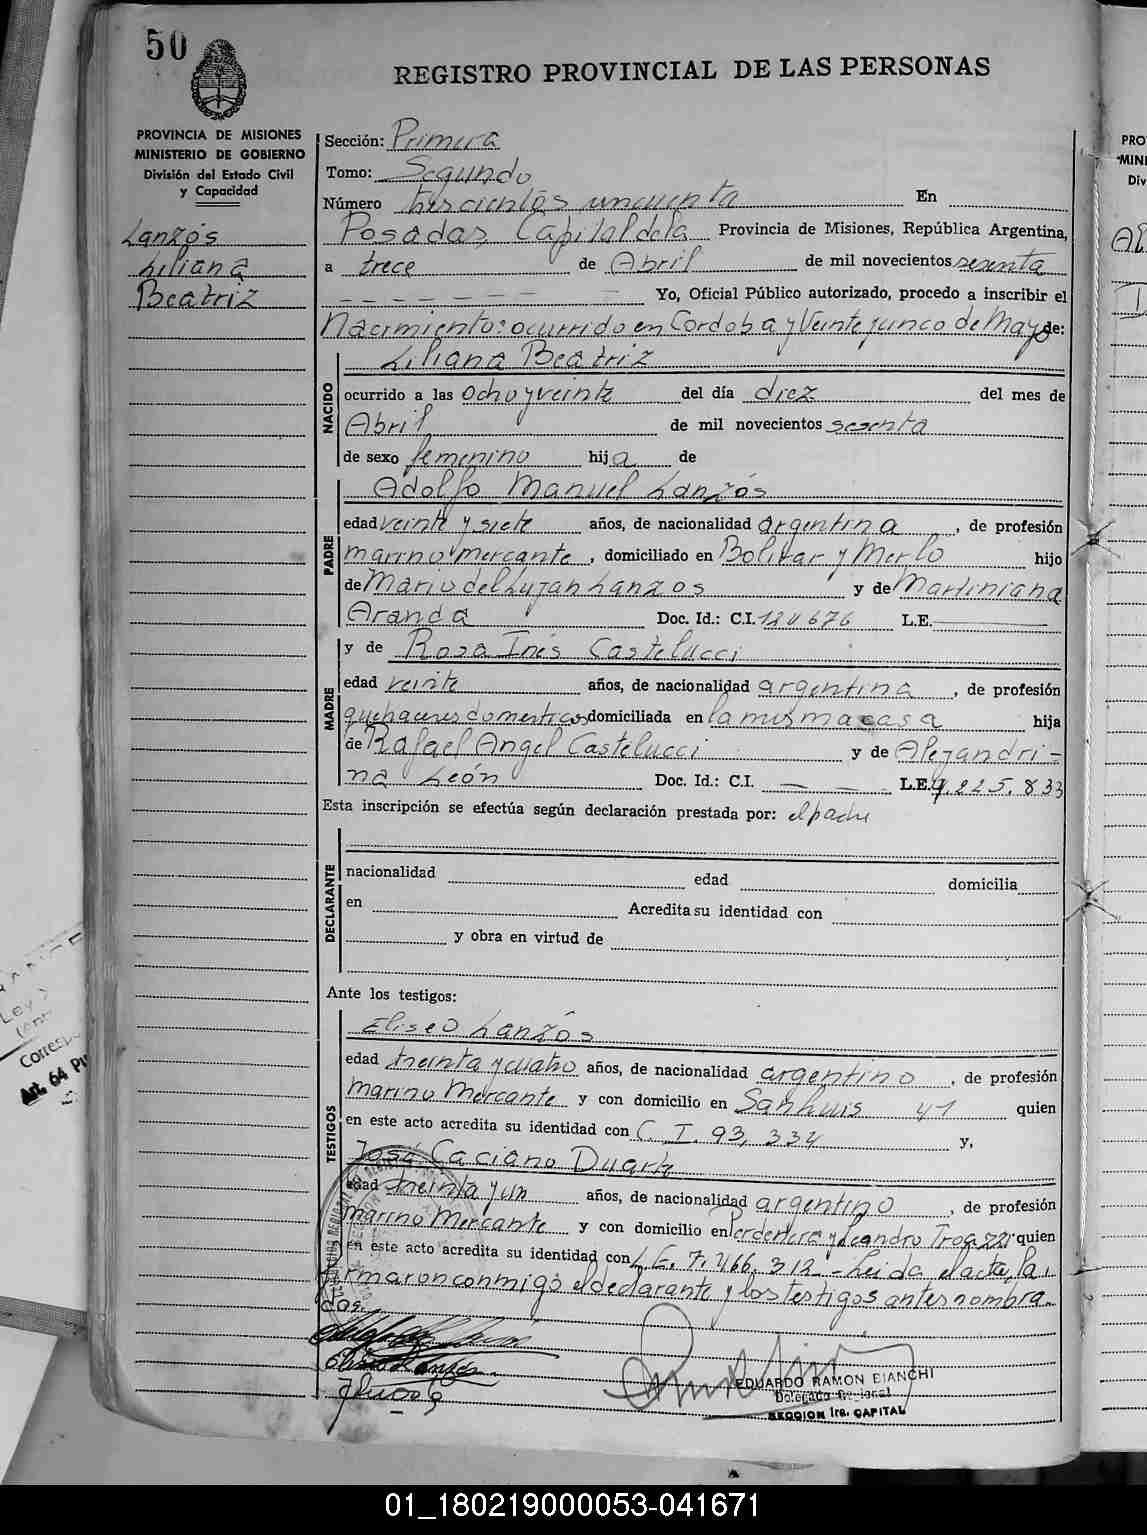 50
REGISTRO PROVINCIAL DE LAS PERSONAS
PROVINCIA DE MISIONES
MINISTERIO DE GOBIERNO
División del Estado Civil
y Capacidad
Lanzós
Liliana
Beatriz
Sección: Primera
Tomo: Segundo
Número trescientos uncuenta En
Posadas Capital de la Provincia de Misiones, República Argentina,
a trece de Abril de mil novecientos sesenta
Yo, Oficial Público autorizado, procedo a inscribir el
Nacimiento: ocurrido en Cordoba y Veinte y unco de Mayo de:
Liliana Beatriz
NACIDO
ocurrido a las ocho y veinte del día diez del mes de
Abril de mil novecientos sesenta
de sexo femenino hija de
Adolfo Manuel Lanzós
PADRE
edad veinte y siete años, de nacionalidad argentina, de profesión
marino mercante, domiciliado en Bolivar y Merlo hijo
de Mario del Lujan Lanzos y de Martiniana
Aranda Doc. Id.: C.I. 124676 L.E.
y de Rosa Inés Castelucci
MADRE
edad veinte años, de nacionalidad argentina, de profesión
quehaceres domesticos domiciliada en la misma casa hija
de Rafael Angel Castelucci y de Alejandri-
na León Doc. Id.: C.I. — — L.E. 4.225.833
Esta inscripción se efectúa según declaración prestada por: el padre
DECLARANTE
nacionalidad edad domicilia
en Acredita su identidad con
y obra en virtud de
Ante los testigos:
TESTIGOS
Eliseo Lanzós
edad treinta y cuatro años, de nacionalidad argentino, de profesión
Marino Mercante y con domicilio en San Luis 41 quien
en este acto acredita su identidad con C. I. 93,334 y,
José Caciano Duarte
edad treinta y un años, de nacionalidad argentino, de profesión
Marino Mercante y con domicilio en Perdenera y Leandro quien
en este acto acredita su identidad con L.E. 7.466.312 - Leida el acta, la
firmaron conmigo el declarante y los testigos antes nombra-
dos.
EDUARDO RAMON BIANCHI
Delegado Regional
SECCION 1ra. CAPITAL
PRO
MINI
Div
Ley
Corresp
Art. 64
01_180219000053-041671